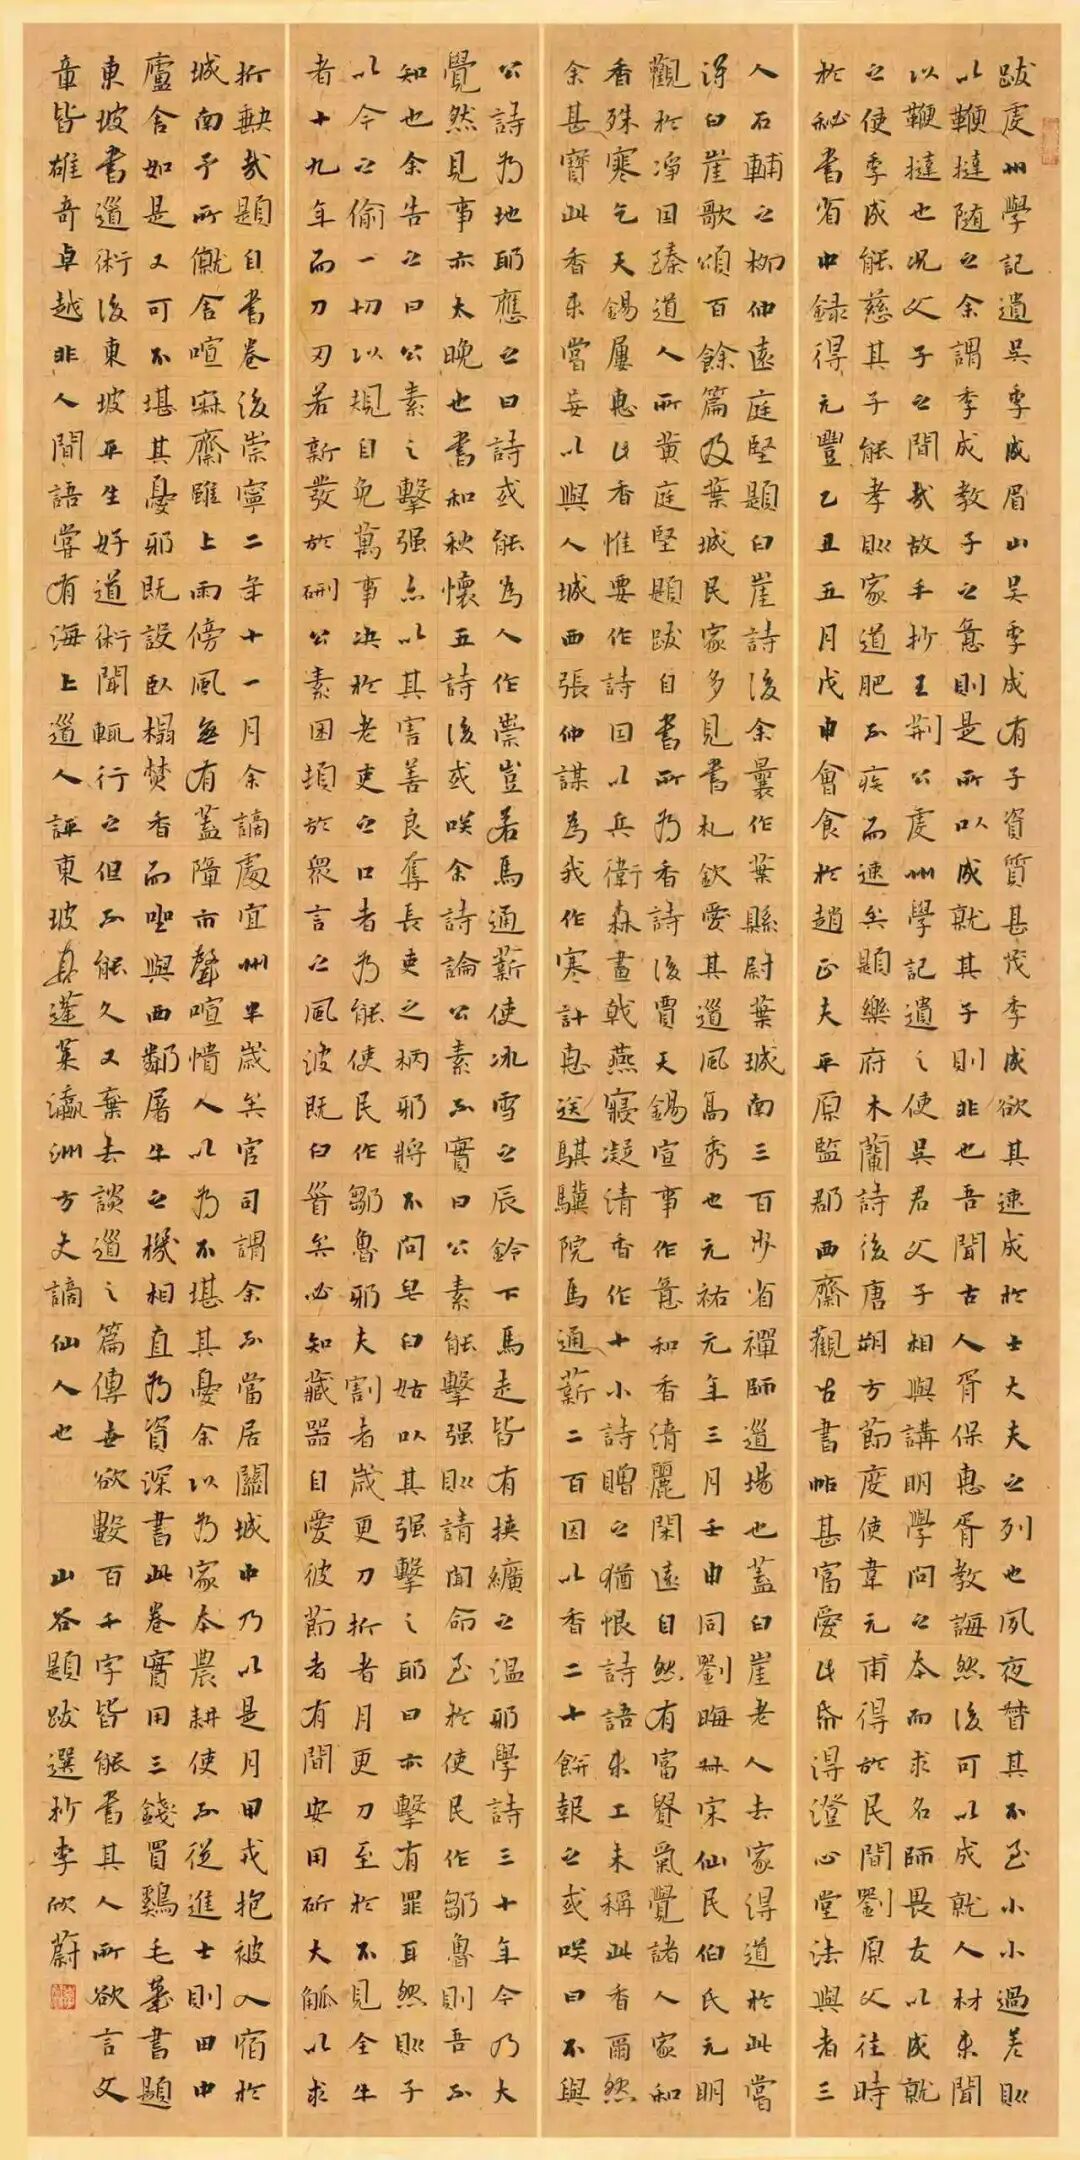 跋虔州學記遺吳季成眉山吳季成有子資質甚茂季成欲其速成於士大夫之列也夙夜督其不至小小過差則
以鞭撻随之余謂季成教子之意則是所以成就其子則非也吾聞古人胥保惠胥教誨然後可以成就人材未聞
以鞭撻也况父子之間哉故手抄王荆公虔州學記遺之使吳君父子相與講明學問之本而求名師畏友以成就
之使季成能慈其子能孝則家道肥不疾而速矣題樂府木蘭詩後唐朔方節度使韋元甫得於民間劉原父往時
於秘書省中録得元豐乙丑五月戊申會食於趙正夫平原監郡西齋觀古書帖甚富愛此昏得澄心堂法與者三
人石輔之柳仲遠庭堅題白崖詩後余曩作葉縣尉葉城南三百步省禪師道場也蓋白崖老人去家得道於此嘗
得白崖歌頌百餘篇及葉城民家多見書札欽愛其道風高秀也元祐元年三月壬申同劉晦叔宋仙民伯氏元明
觀於淨因臻道人所黄庭堅題跋自書所为香詩後賈天錫宣事作意和香清麗閑遠自然有富貴氣覺諸人家和
香殊寒乞天錫屢惠此香惟要作詩因以兵衛森畫戟燕寢凝清香作十小詩贈之猶恨詩語未工未稱此香爾然
余甚寳此香未嘗妄以與人城西張仲謀為我作寒計惠送騏驥院馬通薪二百因以香二十餅報之或咲曰不與
公詩为地耶應之曰詩或能為人作祟豈若馬通薪使冰雪之辰鈴下馬走皆有挟纊之温耶學詩三十年今乃大
覺然見事亦太晚也書和秋懷五詩後或咲余詩論公素不實曰公素能擊强則請聞命至於使民作鄒魯則吾不
知也余告之曰公素之擊强亦以其害善良奪長吏之柄邪將不問皂白姑以其强擊之耶曰亦擊有罪耳然則子
以今之偷一切以規自免萬事决於老吏之口者为能使民作鄒魯邪夫割者歲更刀折者月更刀至於不見全牛
者十九年而刀刃若新發於硎公素困頓於衆言之風波既白首矣必知藏器自愛彼節者有間安用斫大觚以求
折缺哉題自書卷後崇寧二年十一月余謫處宜州半歲矣官司謂余不當居關城中乃以是月甲戌抱被入宿於
城南予所僦舍喧寐齋雖上雨傍風無有蓋障市聲喧憒人以为不堪其憂余以为家本農耕使不從進士則田中
廬舍如是又可不堪其憂邪既設臥榻焚香而坐與西鄰屠牛之機相直为資深書此卷實用三錢買鷄毛筆書題
東坡書道術後東坡平生好道術聞輒行之但不能久又棄去談道之篇傳世欲數百千字皆能書其人所欲言文
章皆雄奇卓越非人間語嘗有海上道人評東坡真蓬莱瀛洲方丈謫仙人也 山谷題跋選抄李欣蔚